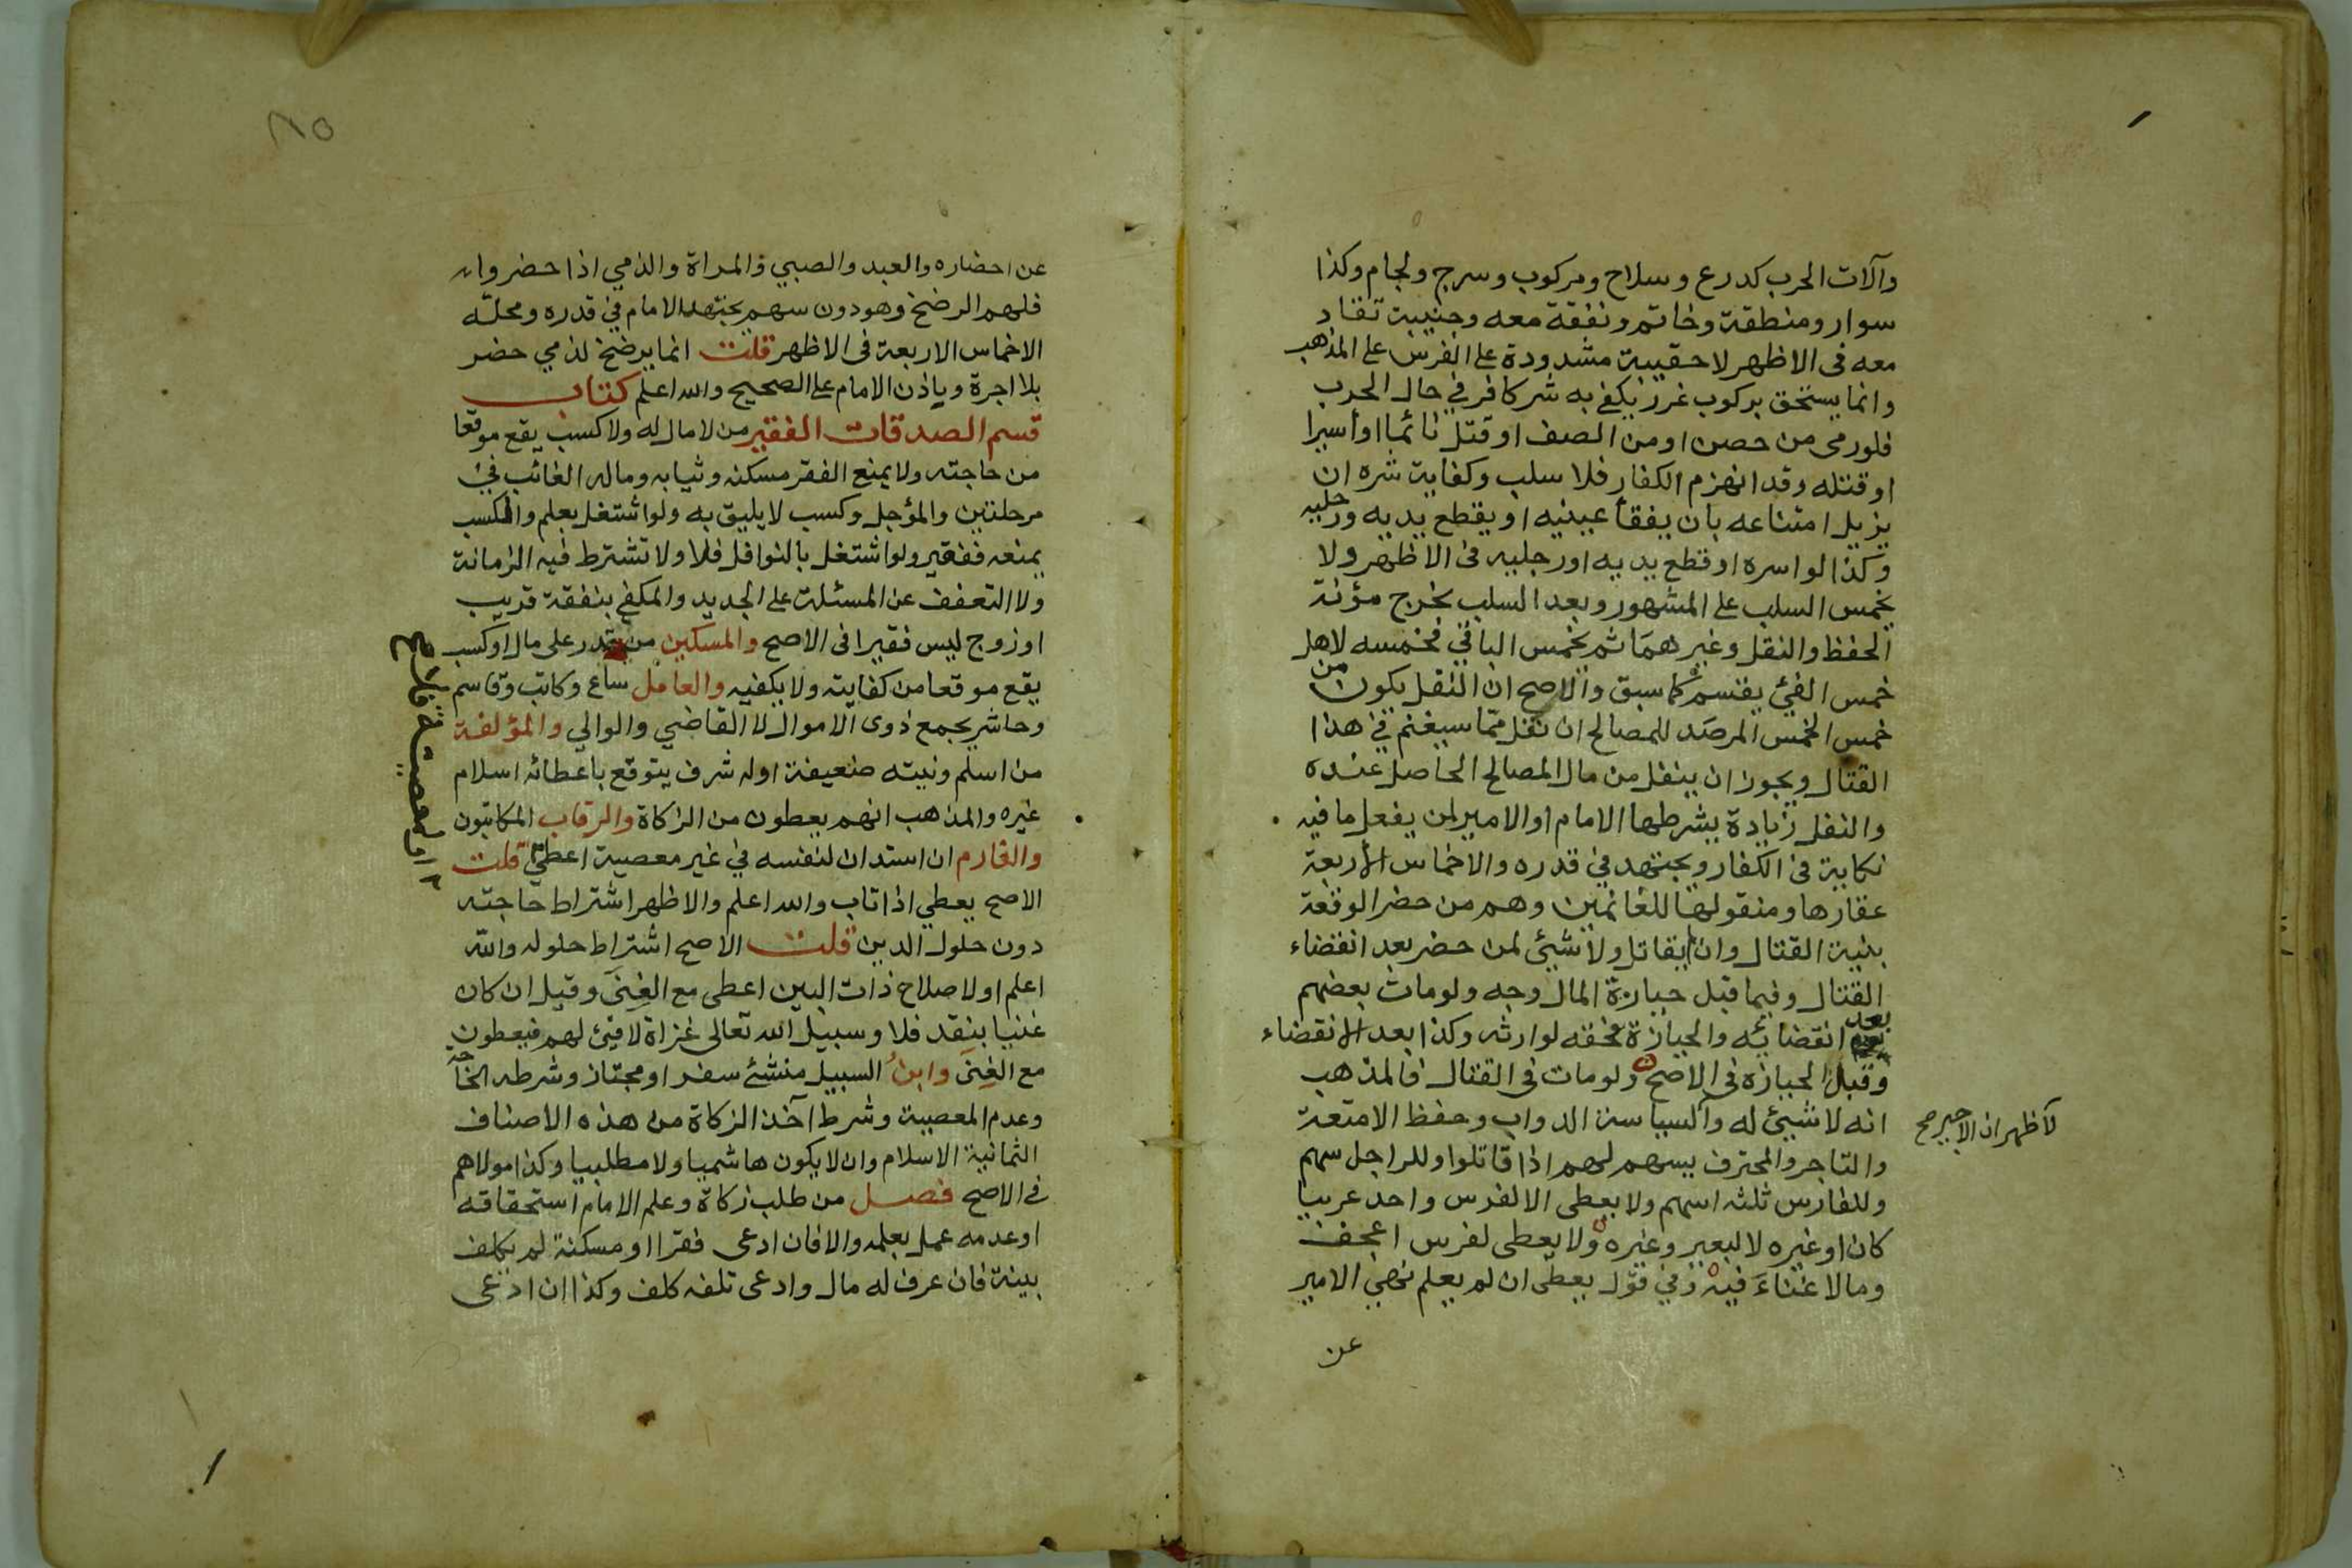 وآلات الحرب كدرع وسلاح ومركوب وسرج ولجام وكذا
سوار ومنطقة وخاتم ونفقة معه وجنيبة تقاد
معه فى الاظهر لا حقيبة مشدودة على الفرس على المذهب
وانما يستحق بركوب غرر يكفى به شر كافر في حال الحرب
فلو رمى من حصن او من الصف او قتل نائما او أسيرا
او قتله وقد انهزم الكفار فلا سلب وكفاية شره ان
يزيل امتناعه بان يفقأ عينيه او يقطع يديه ورجليه
وكذا لو اسره او قطع يديه او رجليه فى الاظهر ولا
يخمس السلب على المشهور وبعد السلب يخرج مؤنة
الحفظ والنقل وغيرهما ثم يخمس الباقي فخمسه لاهل
خمس الفئ يقسم كما سبق والاصح ان النفل يكون من
خمس الخمس المرصد للمصالح ان نفل مما سيغنم في هذا
القتال ويجوز ان ينفل من مال المصالح الحاصل عنده
والنفل زيادة يشرطها الامام او الامير لمن يفعل ما فيه
نكاية فى الكفار ويجتهد في قدره والاخماس الأربعة
عقارها ومنقولها للغانمين وهم من حضر الوقعة
بنية القتال وان لم يقاتل ولا شيئ لمن حضر بعد انقضاء
القتال وفيما قبل حيازة المال وجه ولو مات بعضهم
بعد انقضائه والحيازة فحقه لوارثه وكذا بعد الانقضاء
وقبل الحيازه فى الاصح ولو مات فى القتال فالمذهب
انه لا شيئ له والسياسة الدواب وحفظ الامتعة
لاظهر ان الاجير صح
والتاجر والمحترف يسهم لهم اذا قاتلوا وللراجل سهم
وللفارس ثلثه اسهم ولا يعطى الا لفرس واحد عربيا
كان او غيره لا لبعير وغيره ولا يعطى لفرس اعجف
وما لا غناءَ فيه وفي قول يعطى ان لم يعلم نهي الامير
عن
عن احضاره والعبد والصبي والمراة والذمي اذا حضروا
فلهم الرضخ وهو دون سهم يجتهد الامام في قدره ومحلّه
الاخماس الاربعة فى الاظهر قلت انما يرضخ لذمي حضر
بلا اجرة وباذن الامام على الصحيح والله اعلم كتاب
قسم الصدقات الفقير من لا مال له ولا كسب يقع موقعا
من حاجته ولا يمنع الفقر مسكنه وثيابه وماله الغائب في
مرحلتين والمؤجل وكسب لا يليق به ولو اشتغل بعلم والكسب
يمنعه ففقير ولو اشتغل بالنوافل فلا ولا تشترط فيه الزمانة
ولا التعفف عن المسئلة على الجديد والمكفي بنفقة قريب
او زوج ليس فقيرا فى الاصح والمسكين من قدر على مال او كسب
يقع موقعا من كفايته ولا يكفيه والعامل ساع وكاتب وقاسم
وحاشر يجمع ذوى الاموال لا القاضي والوالي والمؤلفة
من اسلم ونيته ضعيفة او له شرف يتوقع باعطائه اسلام
غيره والمذهب انهم يعطون من الزكاة والرقاب المكاتبون
والغارم ان استدان لنفسه في غير معصية اعطي قلت
الاصح يعطي اذا تاب والله اعلم والاظهر اشتراط حاجته
دون حلول الدين قلت الاصح اشتراط حلوله والله
اعلم او لاصلاح ذات البين اعطى مع الغِنَى وقيل ان كان
غنيا بنقد فلا وسبيل الله تعالى غزاة لا فيئ لهم فيعطون
مع الغِنَى وابن السبيل منشئ سفر او مجتاز وشرطه الحاجة
وعدم المعصية وشرط آخذ الزكاة من هذه الاصناف
الثمانية الاسلام وان لا يكون هاشميا ولا مطلبيا وكذا مولاهم
في الاصح فصل من طلب زكاة وعلم الامام استحقاقه
او عدمه عمل بعلمه والا فان ادعى فقرا او مسكنة لم يكلف
بينة فان عرف له مال وادعى تلفه كلف وكذا ان ادعى